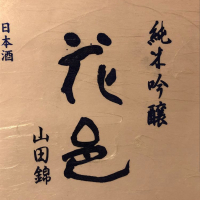 純米吟醸
花邑
山田錦
日本酒